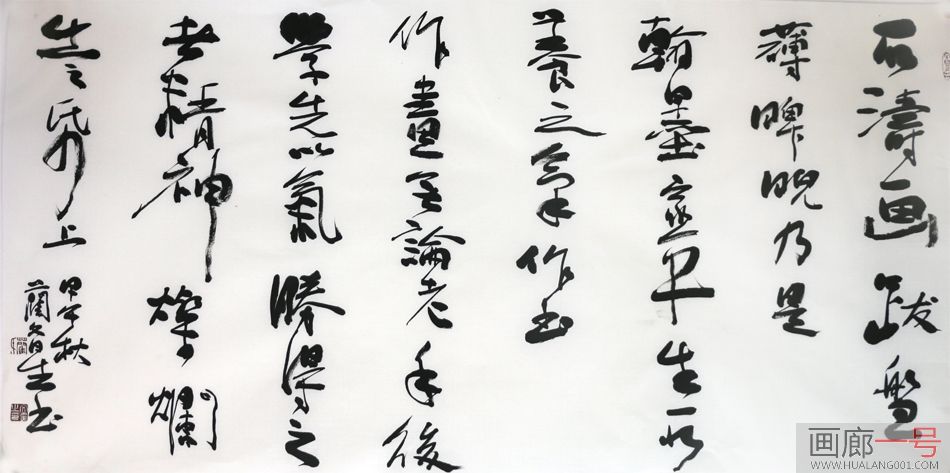 石濤画跋盤
薄睥睨乃是
翰墨家平生所
養之氣作书
作畫无論老手後
學先以氣勝得之
者精神燦爛
出之紙上
甲午秋
生书
画廊一号
WWW.HUALANG001.COM